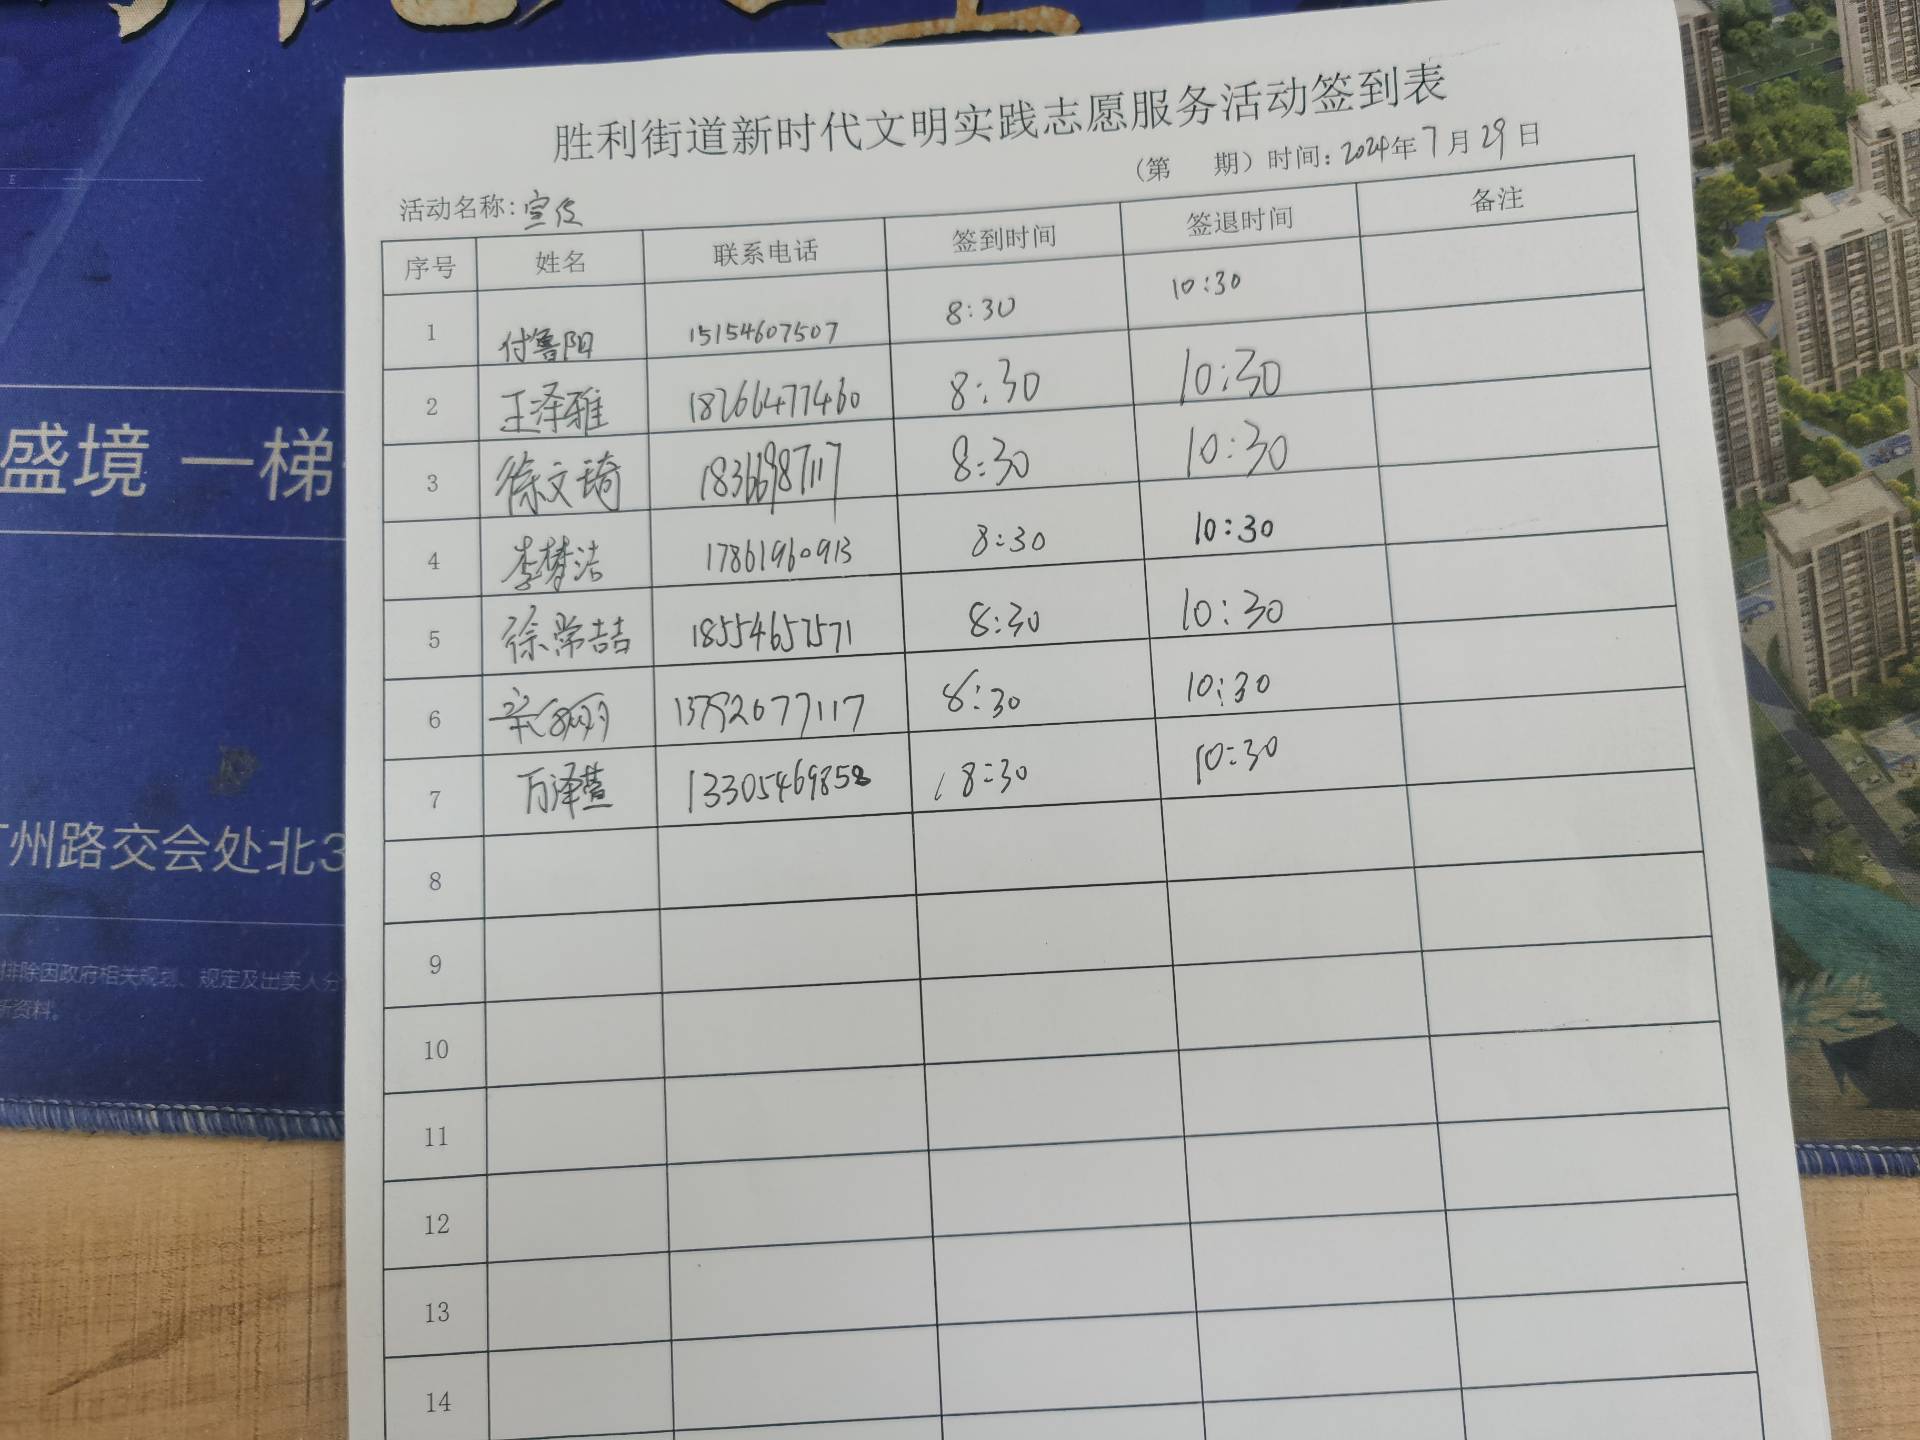 胜利街道新时代文明实践志愿服务活动签到表
(第 期)时间:2024年7月29日
活动名称:宣传
序号 姓名 联系电话 签到时间 签退时间 备注
1 付鲁阳 15154607507 8:30 10:30
2 王泽雅 18266477460 8:30 10:30
3 徐文琦 18366987117 8:30 10:30
4 李梦洁 17861960913 8:30 10:30
5 徐常喆 18554657571 8:30 10:30
6 13792077117 8:30 10:30
7 万泽萱 13305469858 8:30 10:30
8
9
10
11
12
13
14
盛境 一梯
广州路交会处北3
排除因政府相关规划、规定及出卖人分
新资料。